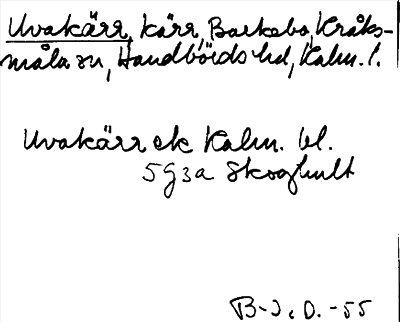 Uvakärr, kärr, Barkebo, Kråks-
måla sn, Handbörds hd, Kalm. l.
Uvakärr ek Kalm. bl.
5G3a Skoghult
B-J. O. -55